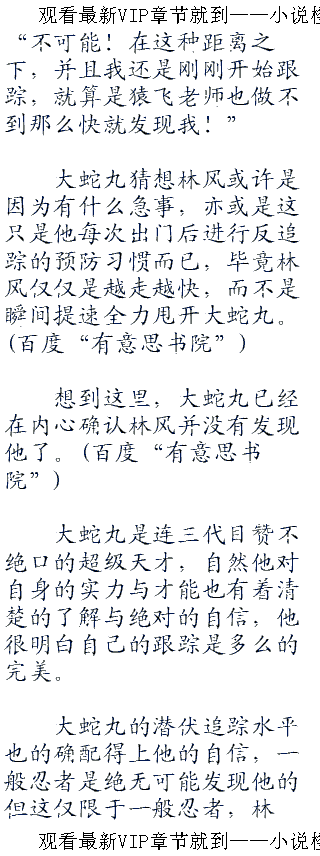 观看最新VIP章节就到——小说楼
“不可能！在这种距离之
下，并且我还是刚刚开始跟
踪，就算是猿飞老师也做不
到那么快就发现我！”
大蛇丸猜想林风或许是
因为有什么急事，亦或是这
只是他每次出门后进行反追
踪的预防习惯而已，毕竟林
风仅仅是越走越快，而不是
瞬间提速全力甩开大蛇丸。
(百度“有意思书院”)
想到这里，大蛇丸已经
在内心确认林风并没有发现
他了。(百度“有意思书
院”)
大蛇丸是连三代目赞不
绝口的超级天才，自然他对
自身的实力与才能也有着清
楚的了解与绝对的自信，他
很明白自己的跟踪是多么的
完美。
大蛇丸的潜伏追踪水平
也的确配得上他的自信，一
般忍者是绝无可能发现他的
但这仅限于一般忍者，林
观看最新VIP章节就到——小说